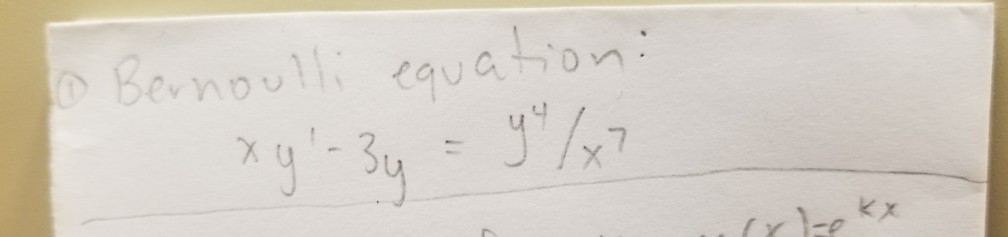 ① Bernoulli equation:
xy' - 3y = y⁴/x⁷
(x)=e^{kx}